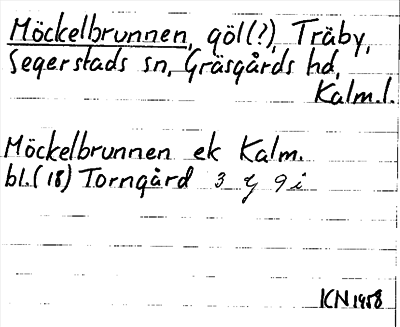 Möckelbrunnen, göl(?), Träby,
Segerstads sn, Gräsgårds hd,
Kalm.l.
Möckelbrunnen ek Kalm.
bl.(18) Torngård 3 g 9 i
ICN 1958